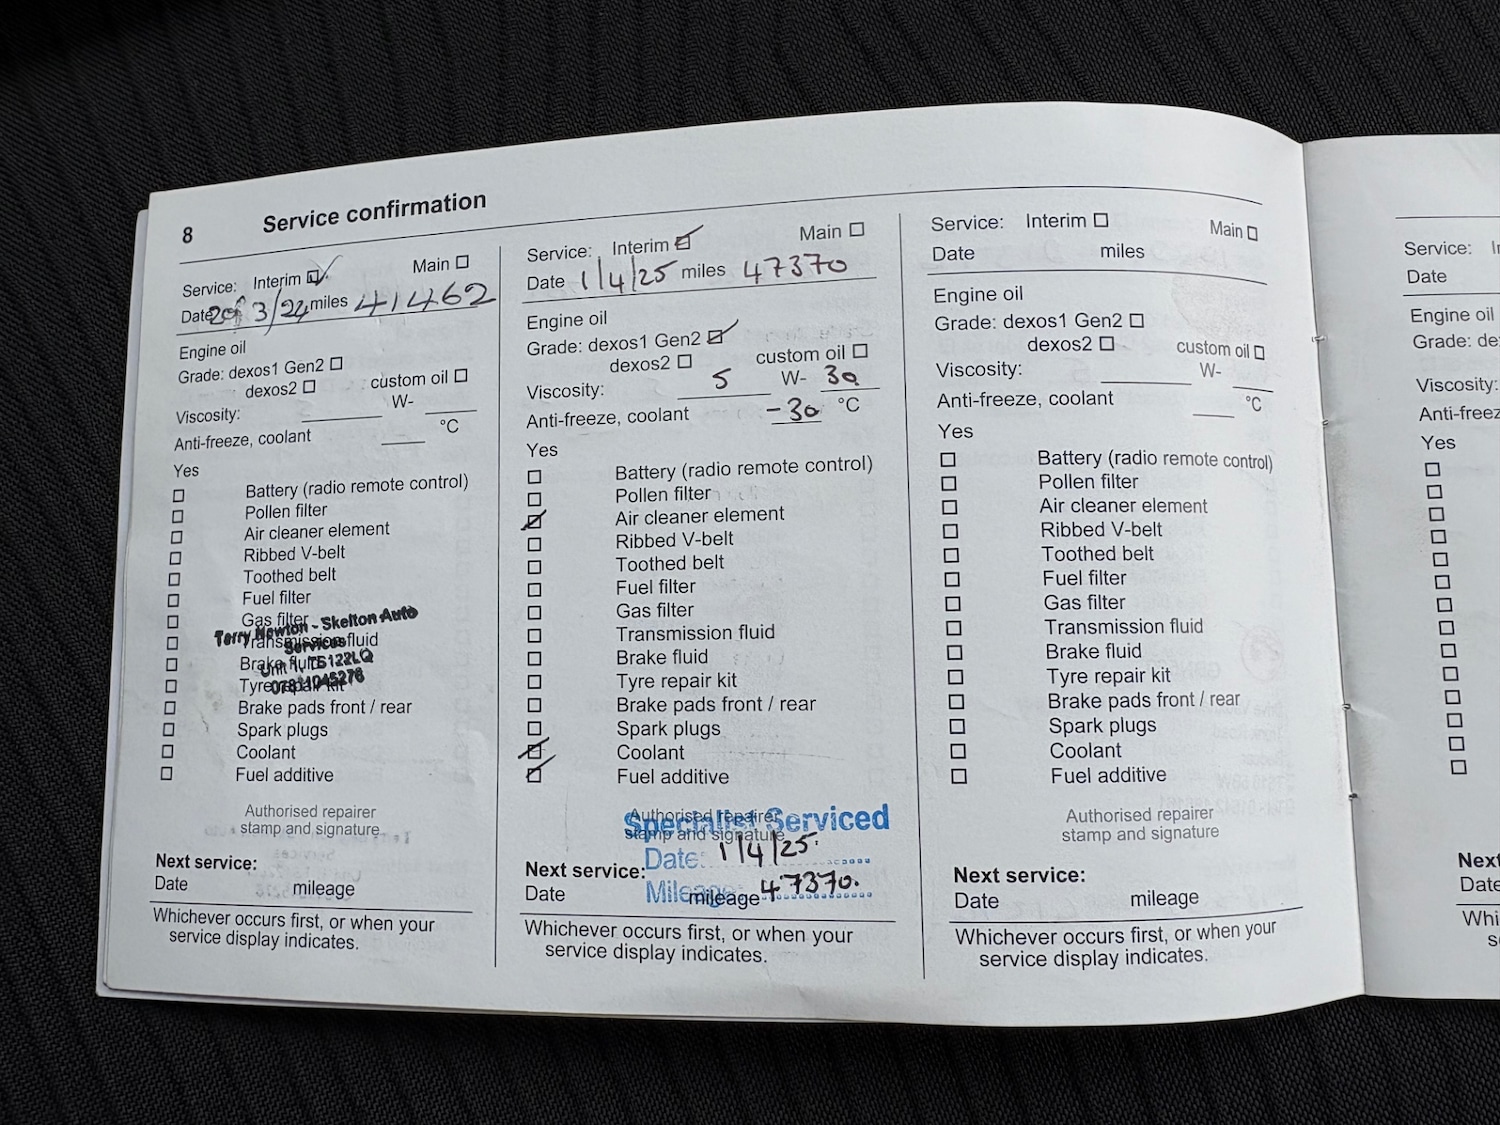 8 Service confirmation
Service: Interim ☑ Main ☐
Date 3/24 miles 41462
Engine oil
Grade: dexos1 Gen2 ☐
dexos2 ☐ custom oil ☐
Viscosity: W-
Anti-freeze, coolant °C
Yes
☐ Battery (radio remote control)
☐ Pollen filter
☐ Air cleaner element
☐ Ribbed V-belt
☐ Toothed belt
☐ Fuel filter
☐ Gas filter
☐ Transmission fluid
☐ Brake fluid
☐ Tyre repair kit
☐ Brake pads front / rear
☐ Spark plugs
☐ Coolant
☐ Fuel additive
Terry Newton - Skelton Auto
Services
Unit 1, TS122LQ
07811045276
Authorised repairer
stamp and signature
Next service:
Date mileage
Whichever occurs first, or when your
service display indicates.
Service: Interim ☑ Main ☐
Date 1/4/25 miles 47370
Engine oil
Grade: dexos1 Gen2 ☑
dexos2 ☐ custom oil ☐
Viscosity: 5 W- 30
Anti-freeze, coolant -30 °C
Yes
☐ Battery (radio remote control)
☐ Pollen filter
☑ Air cleaner element
☐ Ribbed V-belt
☐ Toothed belt
☐ Fuel filter
☐ Gas filter
☐ Transmission fluid
☐ Brake fluid
☐ Tyre repair kit
☐ Brake pads front / rear
☐ Spark plugs
☑ Coolant
☑ Fuel additive
Authorised repairer
stamp and signature
Specialist Serviced
Date: 1/4/25.
Mileage 47370.
Next service:
Date mileage
Whichever occurs first, or when your
service display indicates.
Service: Interim ☐ Main ☐
Date miles
Engine oil
Grade: dexos1 Gen2 ☐
dexos2 ☐ custom oil ☐
Viscosity: W-
Anti-freeze, coolant °C
Yes
☐ Battery (radio remote control)
☐ Pollen filter
☐ Air cleaner element
☐ Ribbed V-belt
☐ Toothed belt
☐ Fuel filter
☐ Gas filter
☐ Transmission fluid
☐ Brake fluid
☐ Tyre repair kit
☐ Brake pads front / rear
☐ Spark plugs
☐ Coolant
☐ Fuel additive
Authorised repairer
stamp and signature
Next service:
Date mileage
Whichever occurs first, or when your
service display indicates.
Service:
Date
Engine oil
Grade: de
Viscosity:
Anti-freez
Yes
Next
Date
Whi